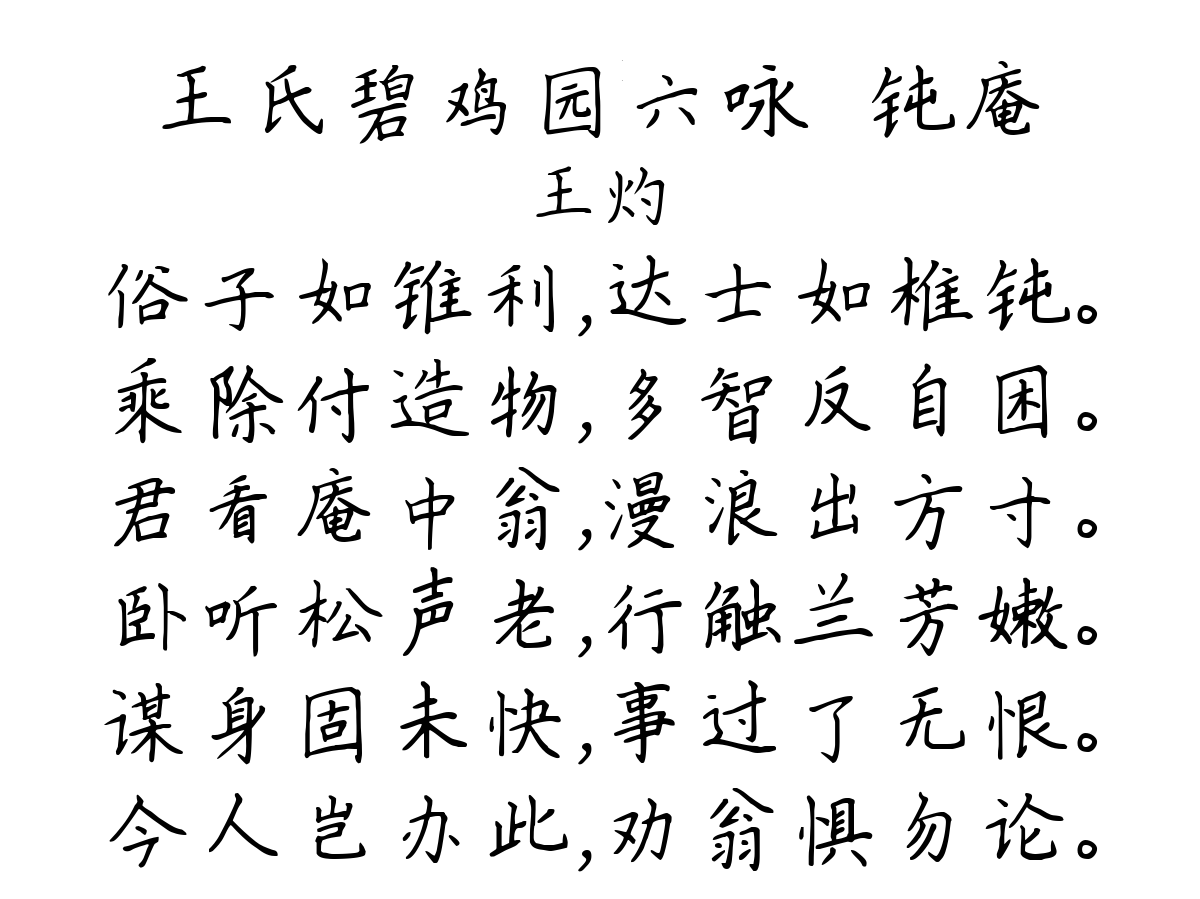 王氏碧鸡园六咏 钝庵
王灼
俗子如锥利,达士如椎钝。
乘除付造物,多智反自困。
君看庵中翁,漫浪出方寸。
卧听松声老,行触兰芳嫩。
谋身固未快,事过了无恨。
今人岂办此,劝翁惧勿论。